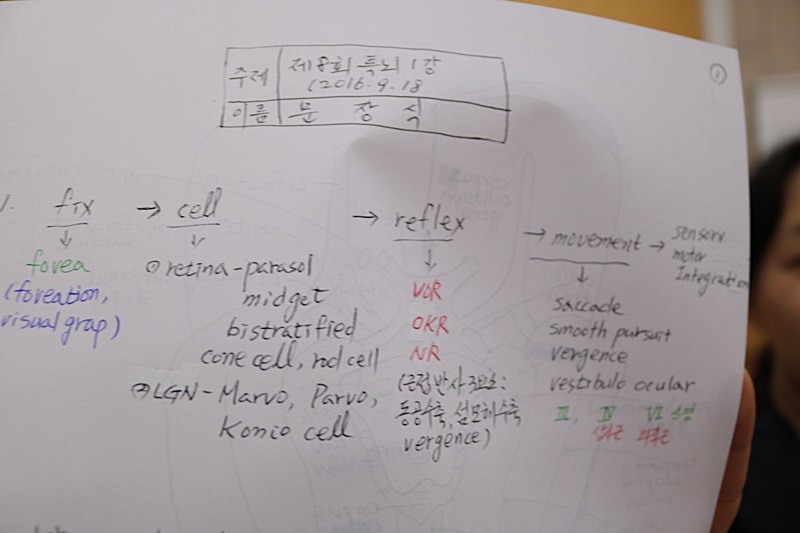 ①
주제 제8회 특뇌 1강
(2016.9.18
이름 문 장 식
1. fix → cell → reflex → movement → sensory motor Integration
↓ ↓ ↓ ↓
fovea
(foveation,
visual grap)
① retina-parasol
midget
bistratified
cone cell, rod cell
② LGN-Marvo, Parvo,
Konio cell
VOR
OKR
NR
(근접반사 3요소:
동공수축, 섬모체수축
vergence)
saccade
smooth pursuit
vergence
vestibulo ocular
III, IV VI 신경
상사근 외직근